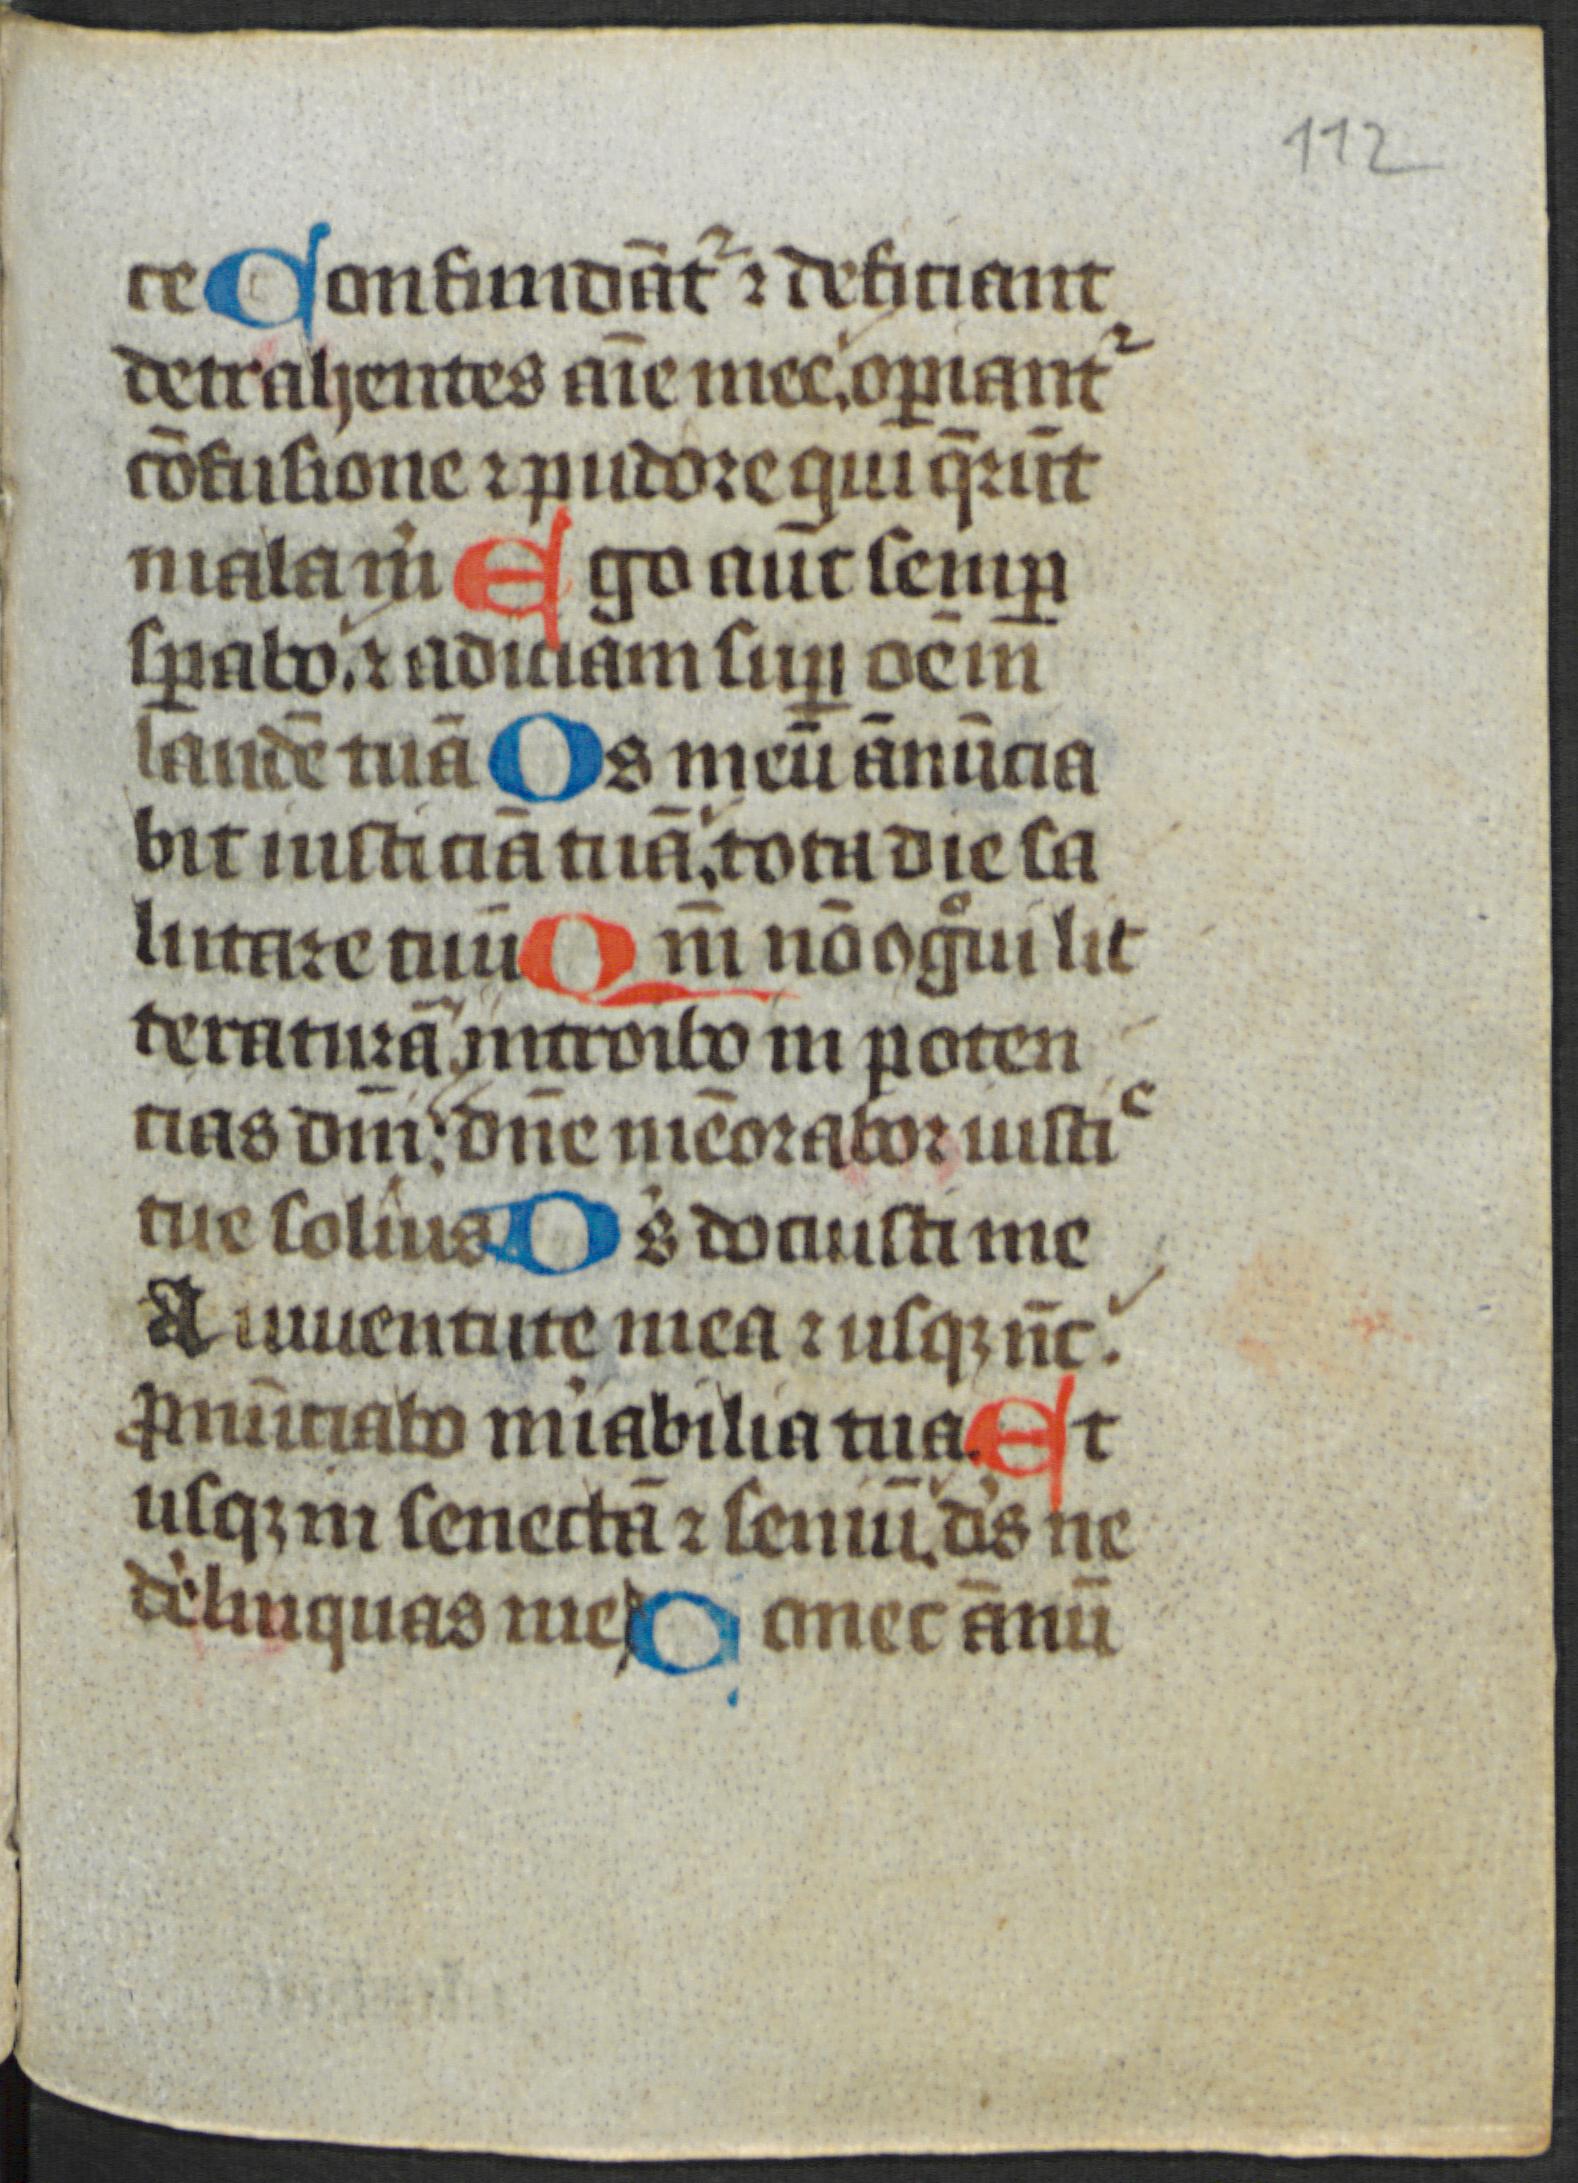 112
te Confundāt᷑ ⁊ deficiant
detrahentes aīe mee, oꝑiant᷑
cōfusione ⁊ pudore qui q̄rūt
mala m̄ Ego aūt semꝑ
sꝑabo, ⁊ adiciam suꝑ oēm
laudē tuā Os meū ānūcia
bit iusticiā tuā, tota die sa
lutare tuū Qm̄ nō ꝯgͦui lit
teraturā introibo in poten
cias dn̄i: dn̄e mēorabor iustiᶜ
tue solius Ds̄ docuisti me
A iuuentute mea ⁊ usqꝫ nūc.
ꝓnūciabo m̓iabilia tua. Et
usqꝫ in senectā ⁊ seniū, ds̄ ne
delinquas me Donec ānū